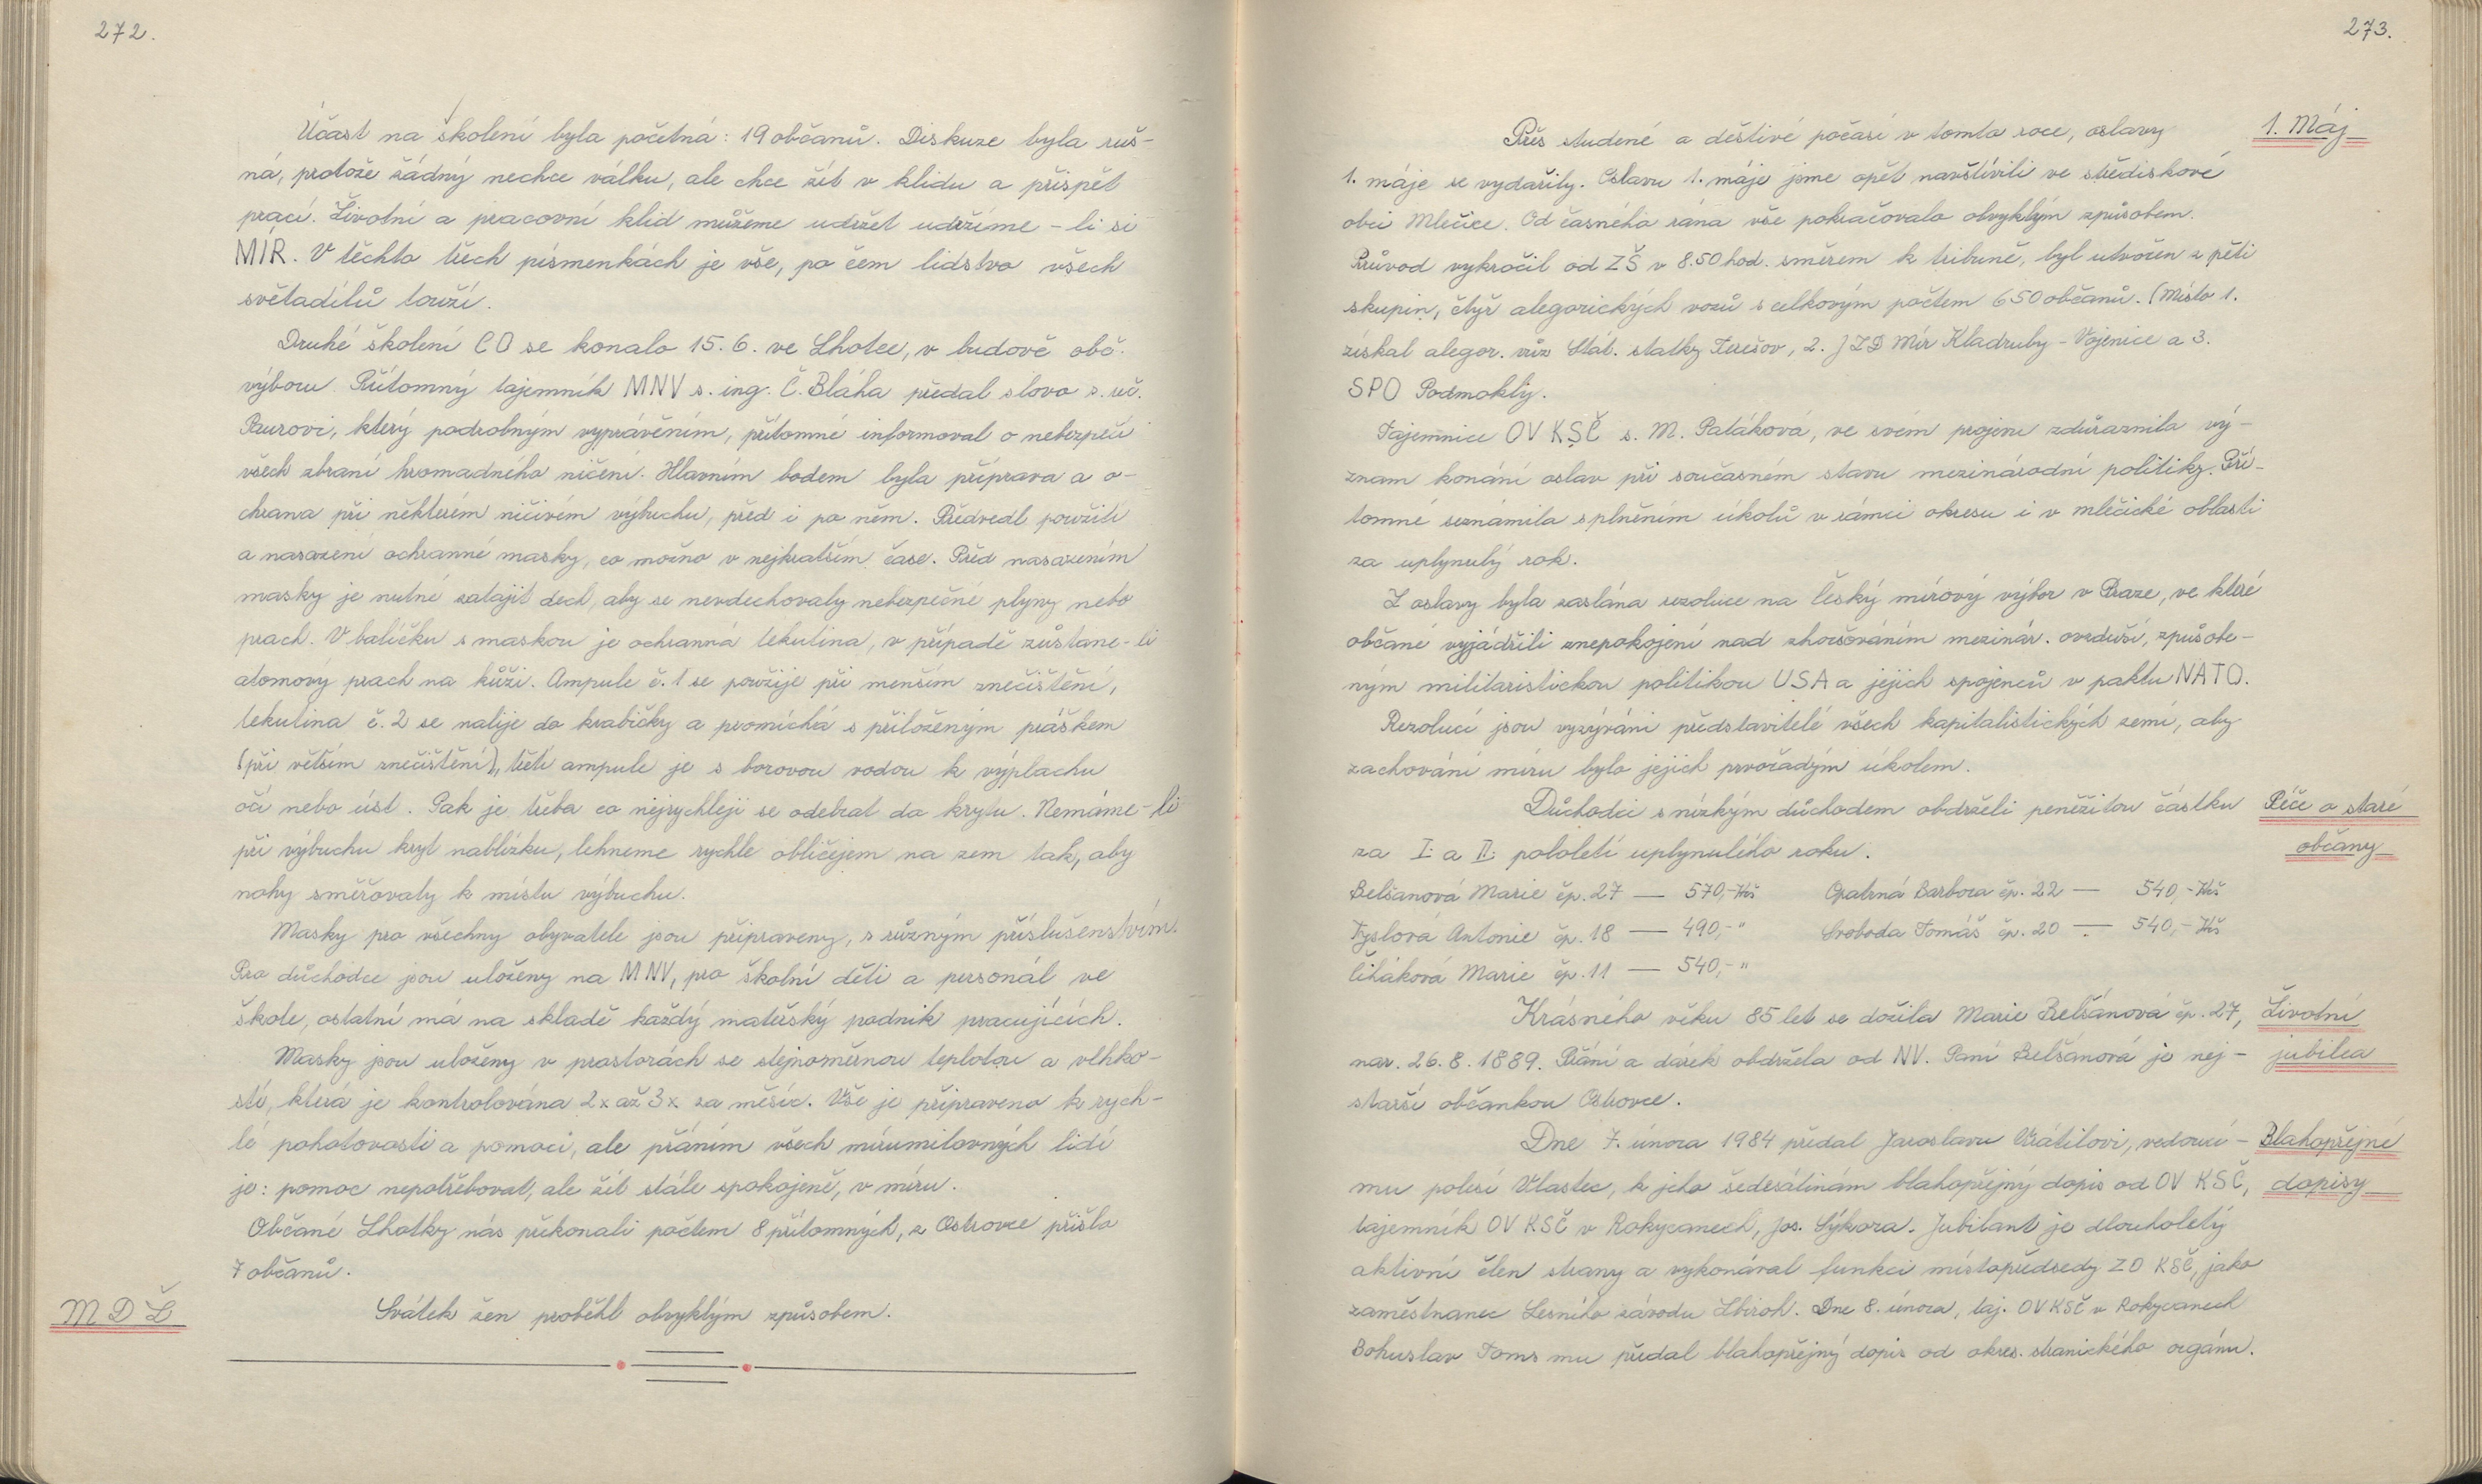 272.
Účast na školení byla početná: 19 občanů. Diskuze byla ruš-
ná, protože žádný nechce válku, ale chce žít v klidu a přispět
prací. Životní a pracovní klid můžeme udržet udržíme-li si
MÍR. V těchto třech písmenkách je vše, po čem lidstvo všech
světadílů touží.
Druhé školení CO se konalo 15.6. ve Lhotce, v budově obč.
výboru. Přítomný tajemník MNV s. ing. Č. Bláha předal slovo s. řeč.
Paurovi, který podrobným vyprávěním, přítomné informoval o nebezpečí
všech zbraní hromadného ničení. Hlavním bodem byla příprava a o-
chrana při některém ničivém výbuchu, před i po něm. Předvedl použití
a nasazení ochranné masky, co možno v nejkratším čase. Před nasazením
masky je nutné zatajit dech, aby se nevdechovaly nebezpečné plyny nebo
prach. V balíčku s maskou je ochranná tekutina, v případě zůstane-li
atomový prach na kůži. Ampule č. 1 se použije při menším znečištění,
tekutina č. 2 se nalije do krabičky a promíchá s přiloženým práškem
(při větším znečištění), třetí ampule je s borovou vodou k výplachu
očí nebo úst. Pak je třeba co nejrychleji se odebrat do krytu. Nemáme-li
při výbuchu kryt nablízku, lehneme rychle obličejem na zem tak, aby
nohy směřovaly k místu výbuchu.
Masky pro všechny obyvatele jsou připraveny, s různým příslušenstvím.
Pro důchodce jsou uloženy na MNV, pro školní děti a personál ve
škole, ostatní má na skladě každý mateřský podnik pracujících.
Masky jsou uloženy v prostorách se stejnoměrnou teplotou a vlhko-
stí, která je kontrolována 2x až 3x za měsíc. Vše je připraveno k rych-
lé pohotovosti a pomoci, ale přáním všech mírumilovných lidí
je: pomoc nepotřebovat, ale žít stále spokojeně, v míru.
Občané Lhotky nás překonali počtem 8 přítomných, z Ostrovce přišlo
7 občanů.
M D Ž
Svátek žen proběhl obvyklým způsobem.
273.
1. Máj
Přes studené a deštivé počasí v tomto roce, oslavy
1. máje se vydařily. Oslavu 1. máje jsme opět navštívili ve střediskové
obci Mlečice. Od časného rána vše pokračovalo obvyklým způsobem.
Průvod vykročil od ZŠ v 8.50 hod. směrem k tribuně, byl utvořen z pěti
skupin, čtyř alegorických vozů s celkovým počtem 650 občanů. (Místo 1.
získal alegor. vůz Stát. statky Terešov, 2. JZD Mír Kladruby - Vojenice a 3.
SPO Podmokly.
Tajemnice OV KSČ s. M. Paťáková, ve svém projevu zdůraznila vý-
znam konání oslav při současném stavu mezinárodní politiky. Pří-
tomné seznámila s plněním úkolů v rámci okresu i v mlečické oblasti
za uplynulý rok.
Z oslavy byla zaslána rezoluce na Český mírový výbor v Praze, ve které
občané vyjádřili znepokojení nad zhoršováním mezinár. ovzduší, způsobe-
ným militaristickou politikou USA a jejich spojenců v paktu NATO.
Rezolucí jsou vyzýváni představitelé všech kapitalistických zemí, aby
zachování míru bylo jejich prvořadým úkolem.
Důchodci s nízkým důchodem obdrželi peněžitou částku
Péče o staré
občany
za I. a II. pololetí uplynulého roku.
Belšanová Marie čp. 27 — 570,- Kčs Opatrná Barbora čp. 22 — 540,- Kčs
Tyslová Antonie čp. 18 — 490,- " Svoboda Tomáš čp. 20 — 540,- Kčs
Čiháková Marie čp. 11 — 540,- "
Krásného věku 85 let se dožila Marie Belšanová čp. 27,
Životní
jubilea
nar. 26.8.1889. Přání a dárek obdržela od NV. Paní Belšanová je nej-
starší občankou Ostrovce.
Dne 7. února 1984 předal Jaroslavu Vrátilovi, vedoucí-
Blahopřejné
dopisy
mu polesí Vlastec, k jeho šedesátinám blahopřejný dopis od OV KSČ,
tajemník OV KSČ v Rokycanech, Jos. Sýkora. Jubilant je dlouholetý
aktivní člen strany a vykonával funkci místopředsedy ZO KSČ, jako
zaměstnanec Lesního závodu Zbiroh. Dne 8. února, taj. OV KSČ v Rokycanech
Bohuslav Toms mu předal blahopřejný dopis od okres. stranického orgánu.